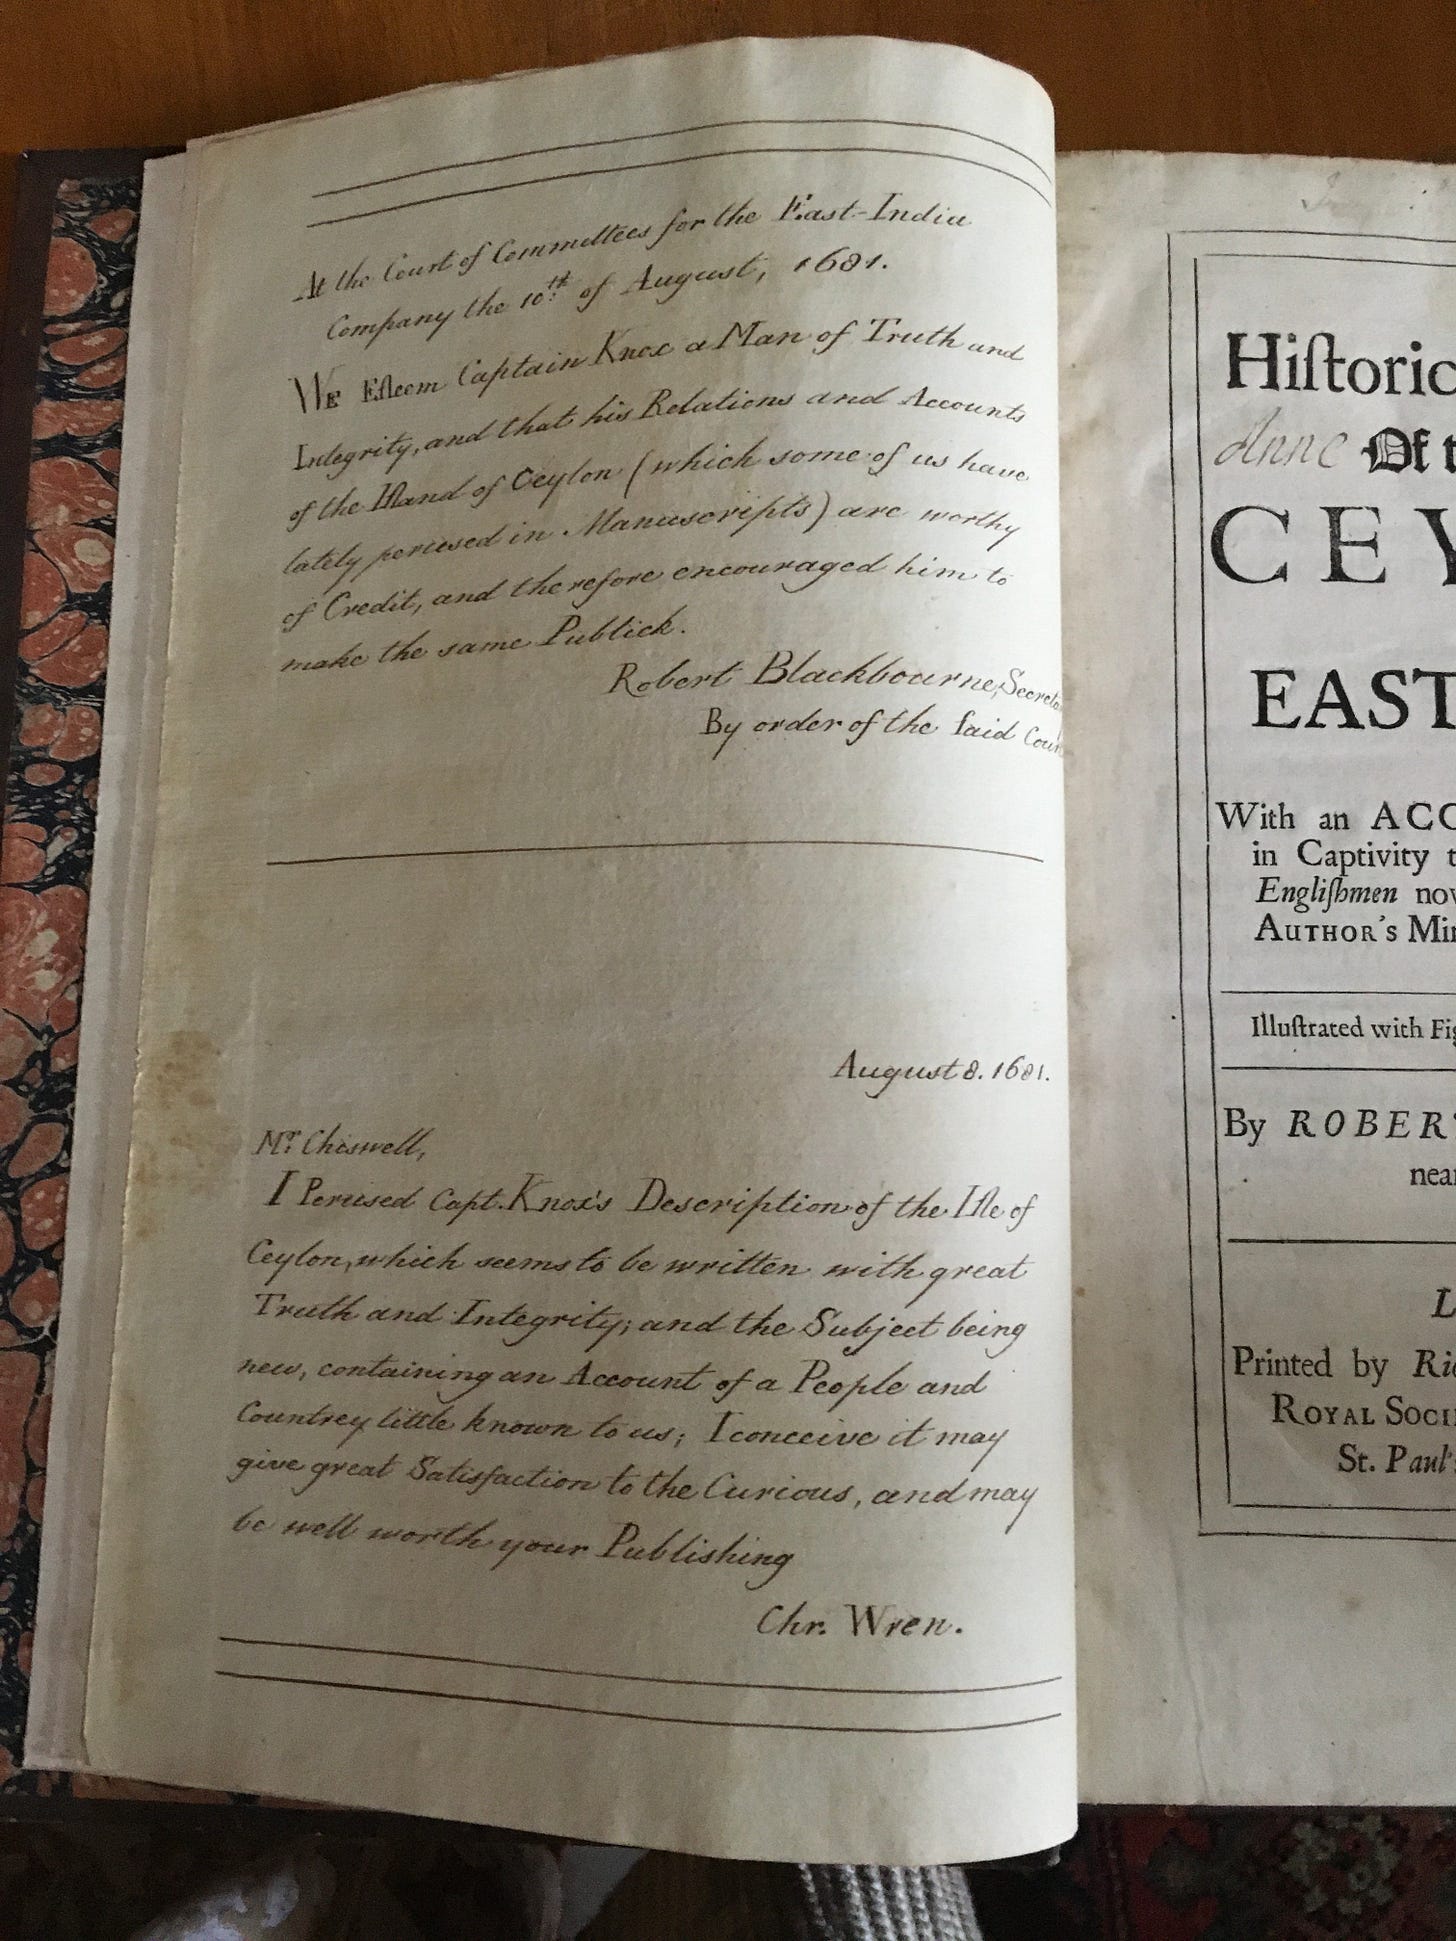 At the Court of Committees for the East-India
Company the 10.th of August, 1681.
WE Eſteem Captain Knox a Man of Truth and
Integrity, and that his Relations and Accounts
of the Iſland of Ceylon (which some of us have
lately perused in Manuscripts) are worthy
of Credit, and therefore encouraged him to
make the same Publick.
Robert Blackbourne, Secreta
By order of the ſaid Cou
August 8. 1681.
Mr. Chiswell,
I Perused Capt. Knox's Description of the Iſle of
Ceylon, which seems to be written with great
Truth and Integrity; and the Subject being
new, containing an Account of a People and
Countrey little known to us; I conceive it may
give great Satisfaction to the Curious, and may
be well worth your Publishing
Chr. Wren.
Hiſtoric
Anne Of t
CEY
EAST
With an ACC
in Captivity t
Engliſhmen nov
AUTHOR'S Mi
Illuſtrated with Fig
By ROBERT
near
L
Printed by Ric
ROYAL SOCI
St. Paul's